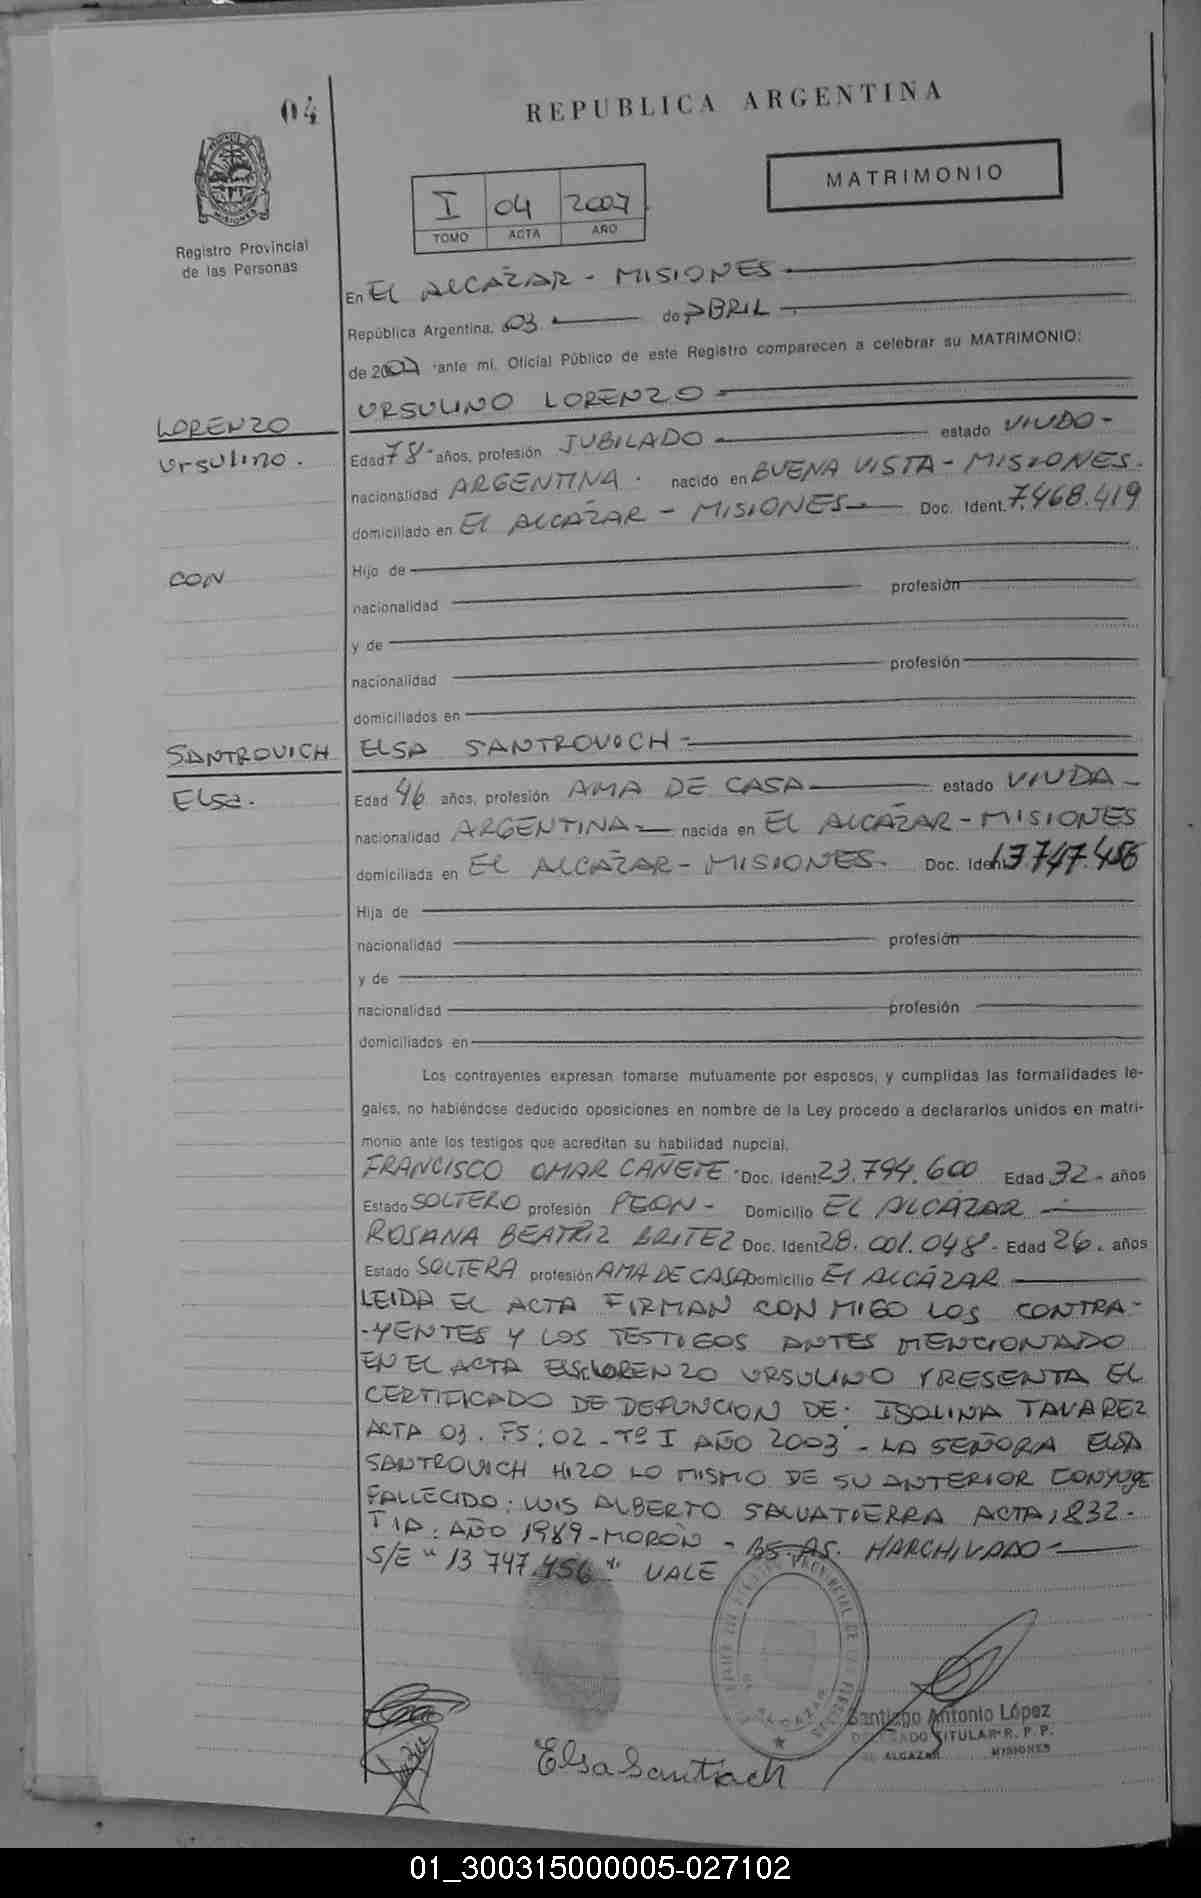 04
REPUBLICA ARGENTINA
MATRIMONIO
I 04 2007
TOMO ACTA AÑO
MISIONES
Registro Provincial
de las Personas
En EL ALCAZAR - MISIONES
República Argentina, 03 de ABRIL
de 2007 ante mi, Oficial Público de este Registro comparecen a celebrar su MATRIMONIO:
LORENZO
Ursulino.
CON
SANTROVICH
Elsa.
URSULINO LORENZO
Edad 78 años, profesión JUBILADO estado VIUDO -
nacionalidad ARGENTINA. nacido en BUENA VISTA - MISIONES.
domiciliado en EL ALCAZAR - MISIONES Doc. Ident. 7.468.419
Hijo de
nacionalidad profesión
y de
nacionalidad profesión
domiciliados en
ELSA SANTROVICH -
Edad 46 años, profesión AMA DE CASA estado VIUDA -
nacionalidad ARGENTINA nacida en EL ALCAZAR - MISIONES
domiciliada en EL ALCAZAR - MISIONES. Doc. Ident. 13.747.456
Hija de
nacionalidad profesión
y de
nacionalidad profesión
domiciliados en
Los contrayentes expresan tomarse mutuamente por esposos, y cumplidas las formalidades le-
gales, no habiéndose deducido oposiciones en nombre de la Ley procedo a declararlos unidos en matri-
monio ante los testigos que acreditan su habilidad nupcial.
FRANCISCO OMAR CAÑETE Doc. Ident. 23.794.600 Edad 32 - años
Estado SOLTERO profesión PEON - Domicilio EL ALCÁZAR
ROSANA BEATRIZ BRITEZ Doc. Ident. 28.001.048 - Edad 26. años
Estado SOLTERA profesión AMA DE CASA Domicilio El ALCÁZAR
LEIDA EL ACTA FIRMAN CONMIGO LOS CONTRA-
-YENTES Y LOS TESTIGOS ANTES MENCIONADO
EN EL ACTA LORENZO URSULINO PRESENTA EL
CERTIFICADO DE DEFUNCION DE: ISOLINA TAVAREZ
ACTA 03. FS: 02 - Tº I AÑO 2003 - LA SEÑORA ELSA
SANTROVICH HIZO LO MISMO DE SU ANTERIOR CONYUGE
FALLECIDO: LUIS ALBERTO SALVATIERRA ACTA 1832 -
AÑO 1989 - MORÓN - BS. AS. HARCHIVADO -
S/E " 13 747.456 " VALE
Elsa Santrach
Santiago Antonio López
DELEGADO TITULAR R. P. P.
EL ALCAZAR MISIONES
01_300315000005-027102